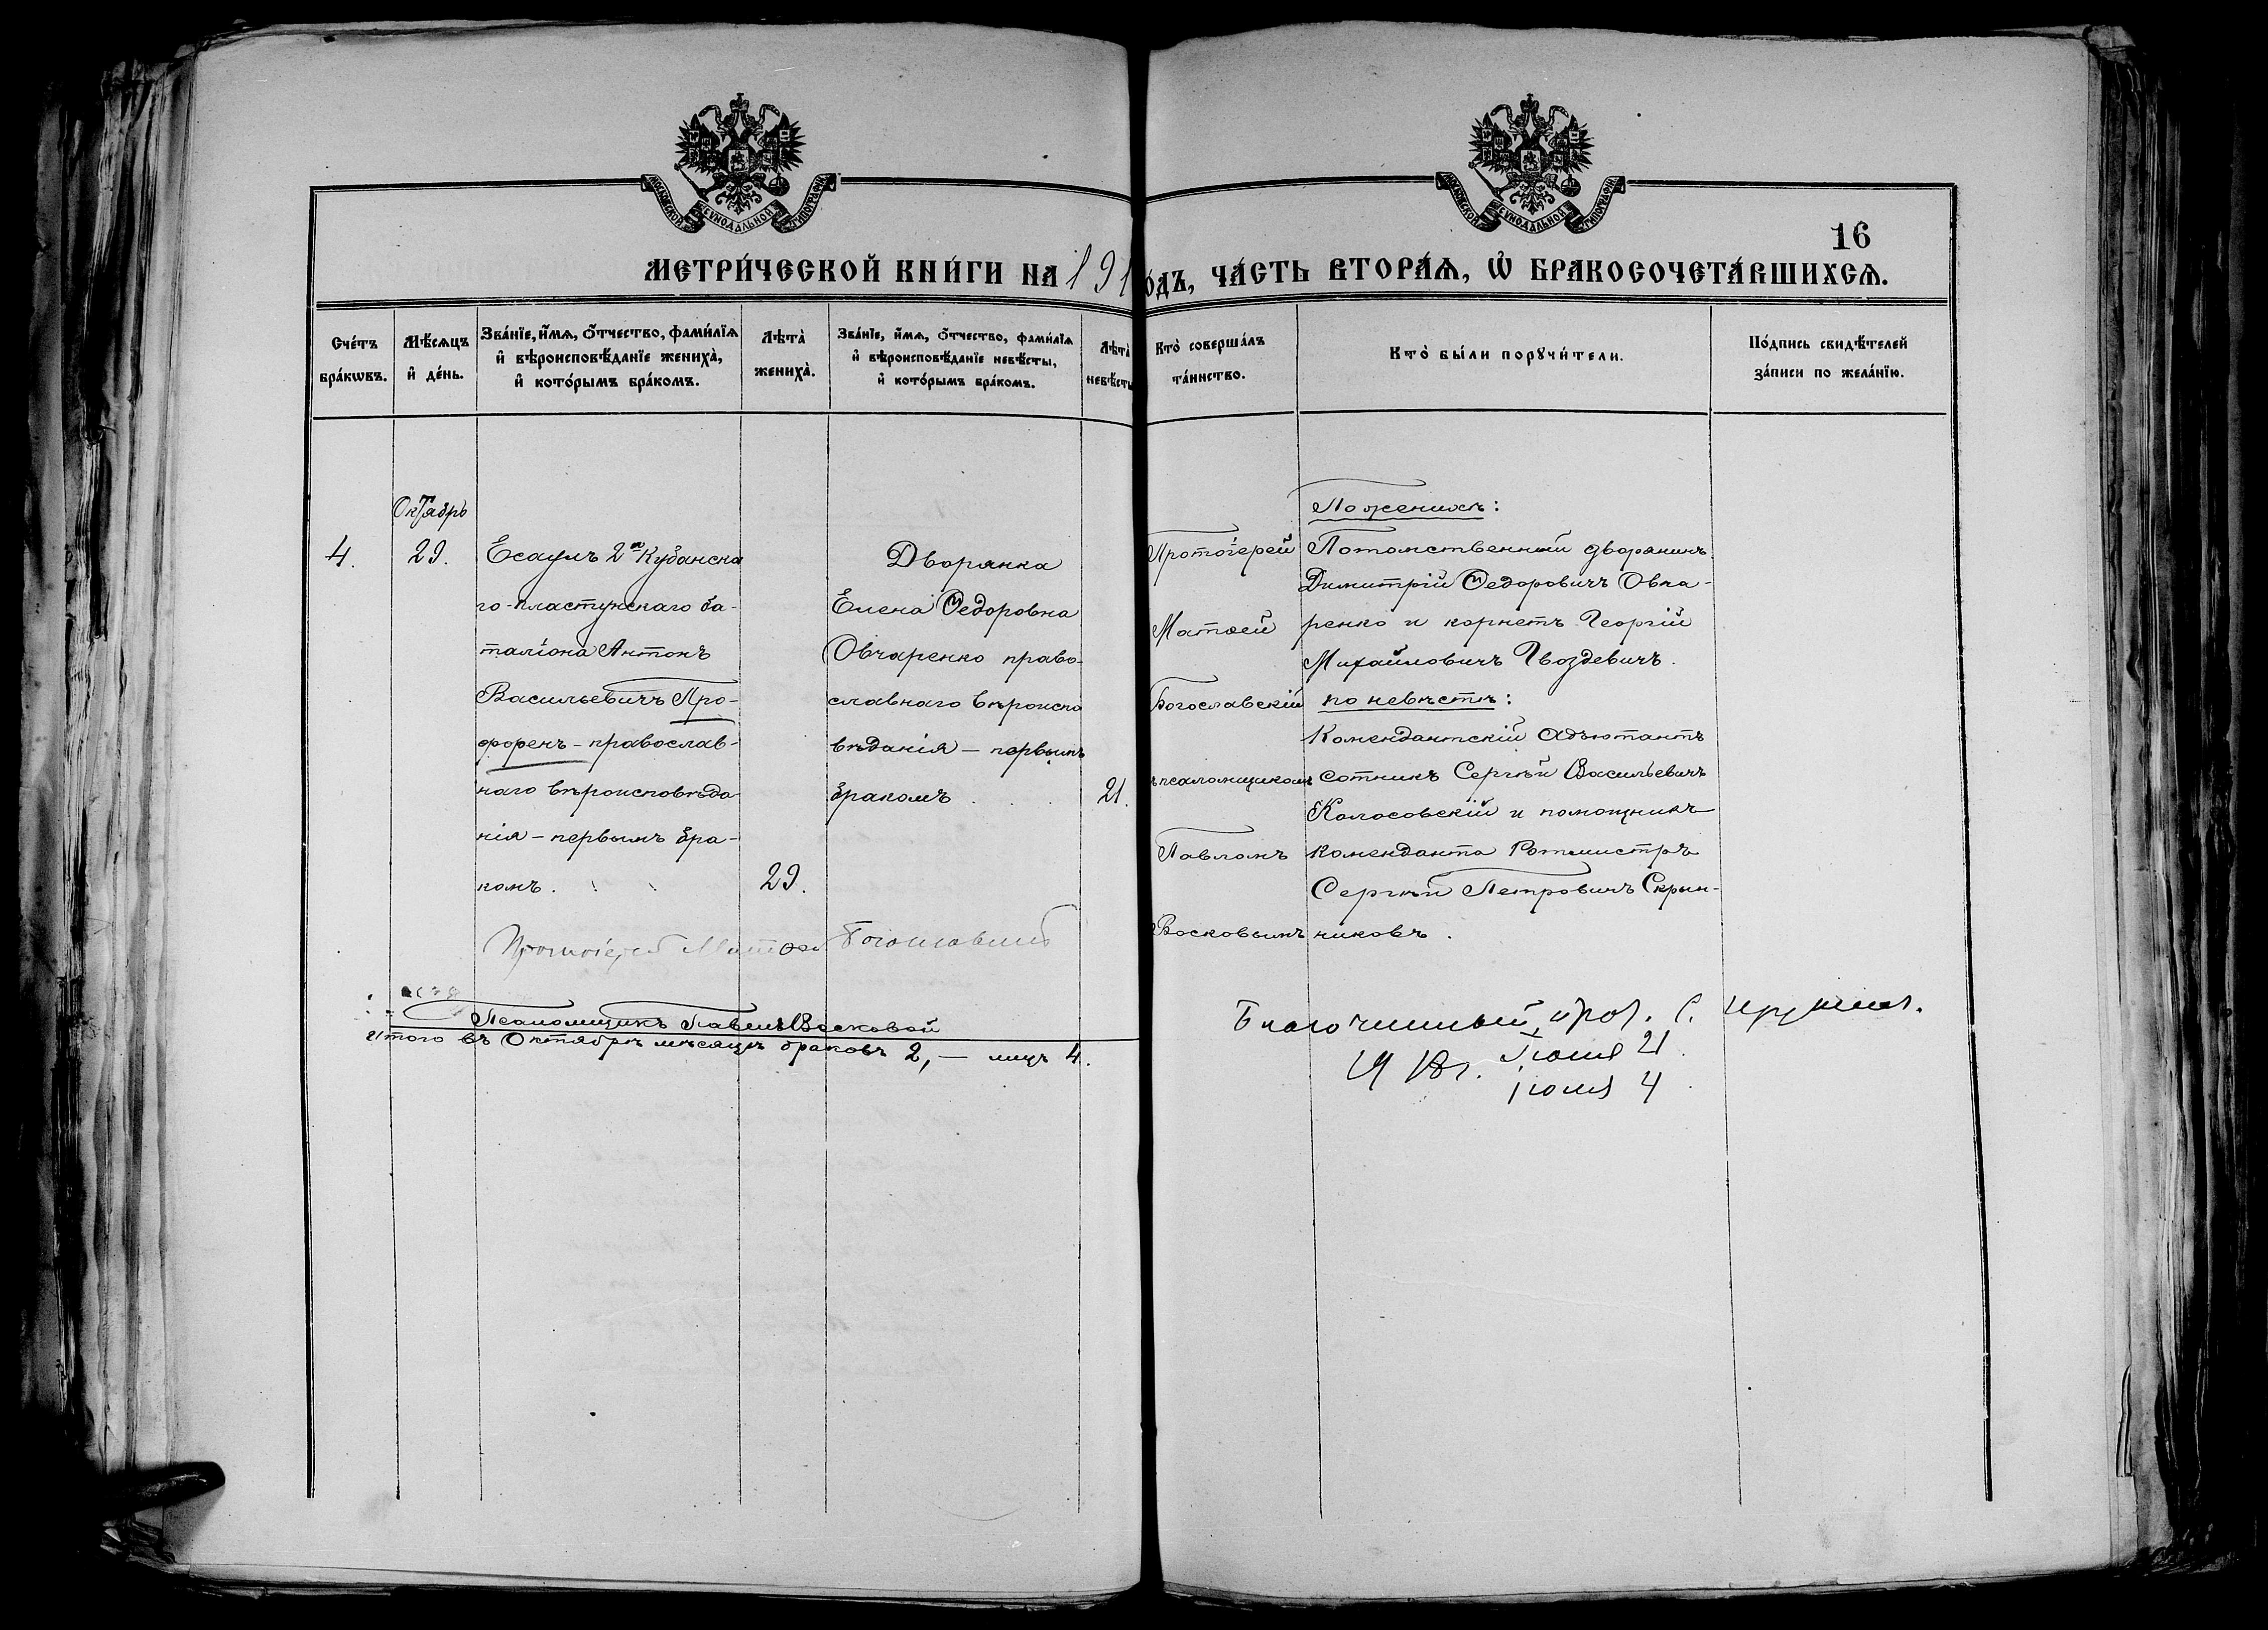 МОСКОВСКОЙ СѴНОДАЛЬНОЙ ТИПОГРАФІИ
МОСКОВСКОЙ СѴНОДАЛЬНОЙ ТИПОГРАФІИ
16
МЕТРИ́ЧЕСКОЙ КНИ́ГИ НА 191
ОДЪ, ЧА́СТЬ ВТОРА́Ѧ, Ѽ БРАКОСОЧЕТА́ВШИХСѦ.
Сче́тъ бра́кѡвъ.
Мѣ́сѧцъ и де́нь.
Зва́нїе, и́мѧ, о́тчество, фами́лїѧ
и вѣроисповѣ́данїе жениха̀,
и кото́рымъ бра́комъ.
Лѣта̀ жениха̀.
Зва́нїе, и́мѧ, о́тчество, фами́лїѧ
и вѣроисповѣ́данїе невѣ́сты,
и кото́рымъ бра́комъ.
Лѣта̀ невѣ́сты
Кто̀ соверша́лъ та́инство.
Кто̀ бы́ли порꙋчи́тели.
По́дпись свидѣ́телей
за́писи по жела́нїю.
Октябрь
4.
29.
Есаулъ 2го Кубанска
го-пластунскаго ба-
таліона Антонъ
Васильевичъ Про-
форенъ – православ-
наго вѣроисповѣда
нія – первымъ бра-
комъ.
29.
Дворянка
Елена Ѳедоровна
Овчаренко право-
славнаго вѣроиспо
вѣданія – первымъ
бракомъ
21.
Протоіерей
Матѳей
Богославскій
ъ псаломщикомъ
Павломъ
Восковымъ
По женихѣ:
Потомственный дворянинъ
Димитрій Ѳедоровичъ Овча-
ренко и корнетъ Георгій
Михайловичъ Гвоздевичъ.
по невѣстѣ:
Комендантскій адъютантъ
сотникъ Сергѣй Васильевичъ
Колосовскій и помощникъ
коменданта Ротмистръ
Сергѣй Петровичъ Скрын-
никовъ.
Протоіерей Матѳей Богославскій
Псаломщикъ Павелъ Восковой
Итого въ Октябрѣ мѣсяцѣ браковъ 2, – лицъ 4.
Благочинный, прот. С.
1918 г. Іюня 21
іюля 4